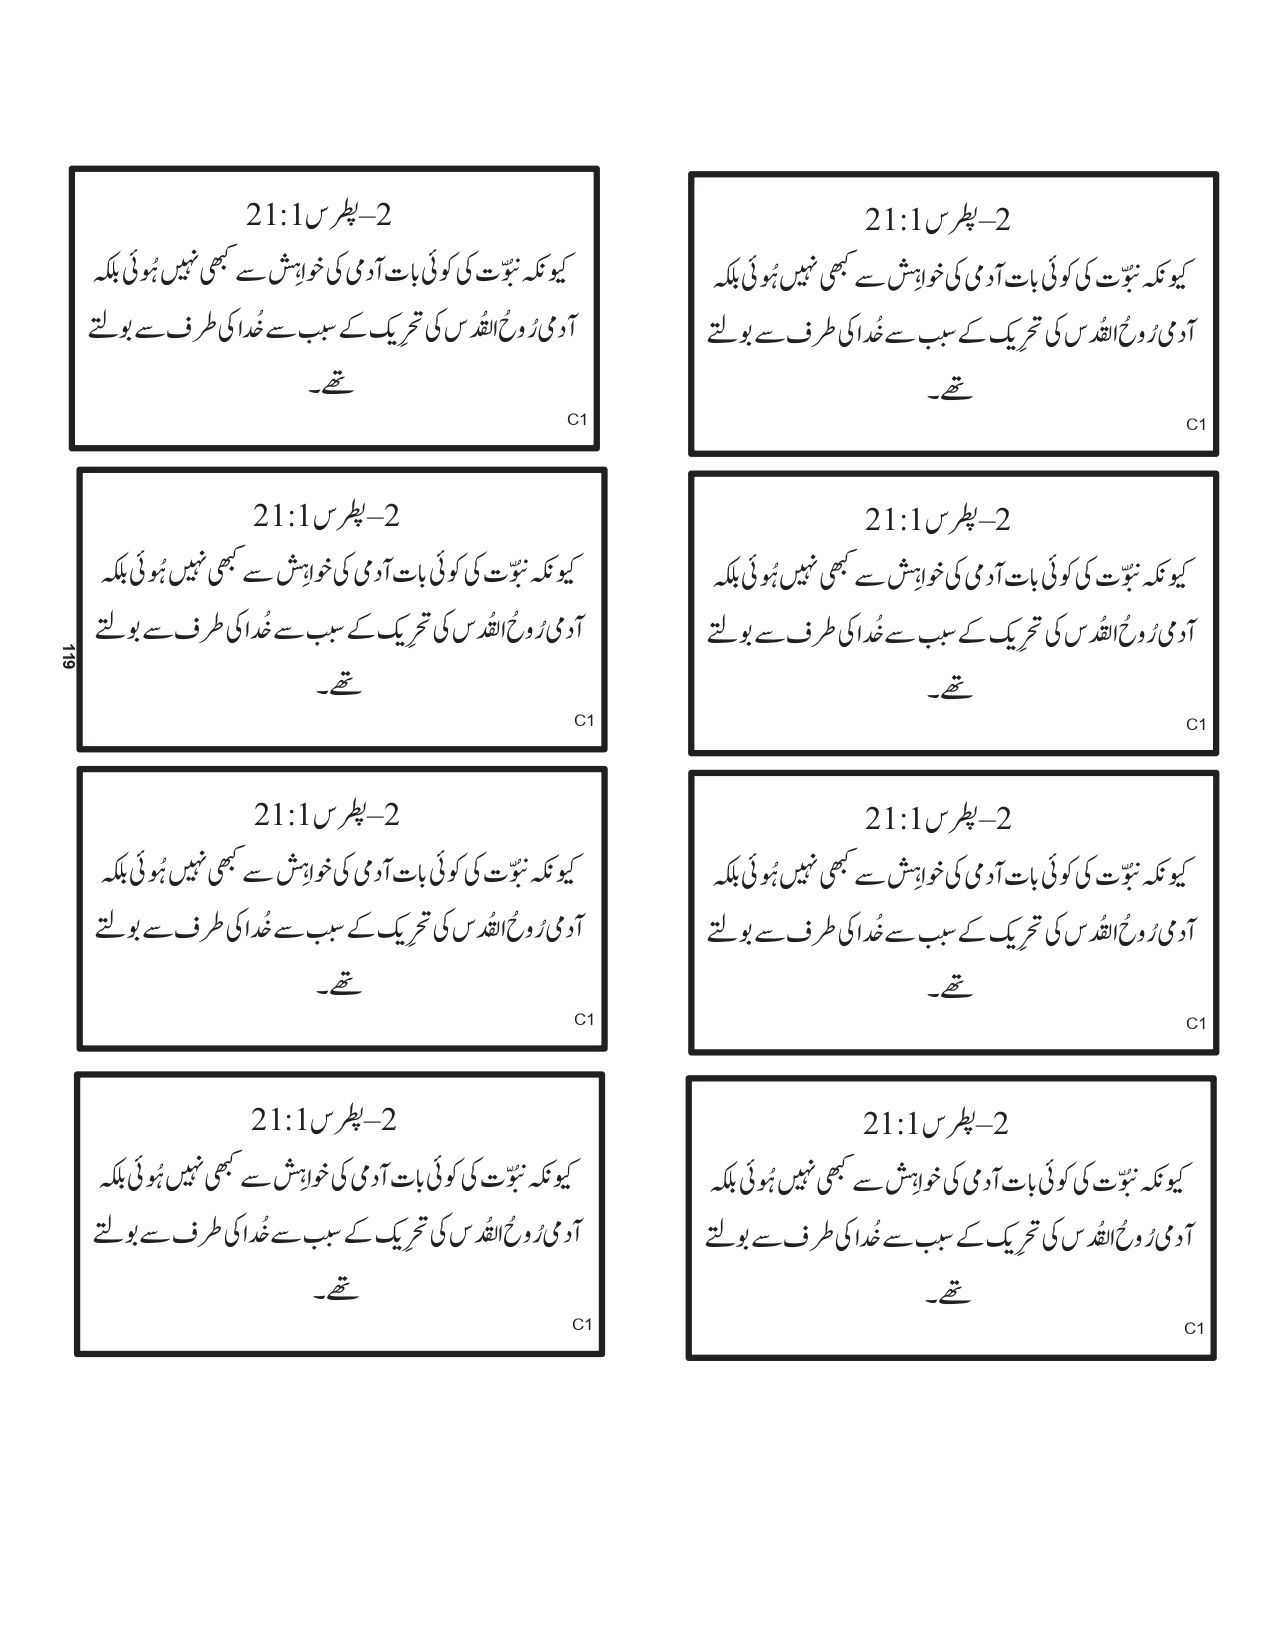 2–پطرس21:1
کیونکہ نبُوّت کی کوئی بات آدمی کی خواہِش سے کبھی نہیں ہُوئی بلکہ
آدمی رُوحُ القُدس کی تحرِیک کے سبب سے خُدا کی طرف سے بولتے
تھے۔
C1
2–پطرس21:1
کیونکہ نبُوّت کی کوئی بات آدمی کی خواہِش سے کبھی نہیں ہُوئی بلکہ
آدمی رُوحُ القُدس کی تحرِیک کے سبب سے خُدا کی طرف سے بولتے
تھے۔
C1
2–پطرس21:1
کیونکہ نبُوّت کی کوئی بات آدمی کی خواہِش سے کبھی نہیں ہُوئی بلکہ
آدمی رُوحُ القُدس کی تحرِیک کے سبب سے خُدا کی طرف سے بولتے
تھے۔
C1
2–پطرس21:1
کیونکہ نبُوّت کی کوئی بات آدمی کی خواہِش سے کبھی نہیں ہُوئی بلکہ
آدمی رُوحُ القُدس کی تحرِیک کے سبب سے خُدا کی طرف سے بولتے
تھے۔
C1
119
2–پطرس21:1
کیونکہ نبُوّت کی کوئی بات آدمی کی خواہِش سے کبھی نہیں ہُوئی بلکہ
آدمی رُوحُ القُدس کی تحرِیک کے سبب سے خُدا کی طرف سے بولتے
تھے۔
C1
2–پطرس21:1
کیونکہ نبُوّت کی کوئی بات آدمی کی خواہِش سے کبھی نہیں ہُوئی بلکہ
آدمی رُوحُ القُدس کی تحرِیک کے سبب سے خُدا کی طرف سے بولتے
تھے۔
C1
2–پطرس21:1
کیونکہ نبُوّت کی کوئی بات آدمی کی خواہِش سے کبھی نہیں ہُوئی بلکہ
آدمی رُوحُ القُدس کی تحرِیک کے سبب سے خُدا کی طرف سے بولتے
تھے۔
C1
2–پطرس21:1
کیونکہ نبُوّت کی کوئی بات آدمی کی خواہِش سے کبھی نہیں ہُوئی بلکہ
آدمی رُوحُ القُدس کی تحرِیک کے سبب سے خُدا کی طرف سے بولتے
تھے۔
C1